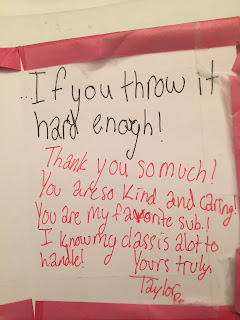 ...If you throw it
hard enough!
Thank you so much!
You are so kind and caring!
You are my favorite sub!
I know my class is a lot to
handle!
Yours truly,
Taylor